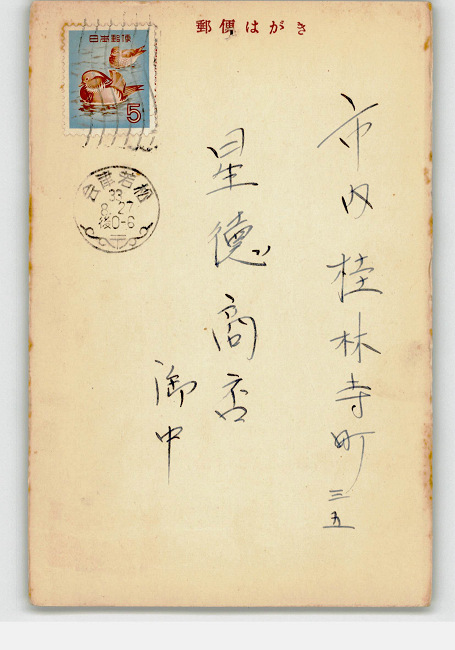 郵便はがき
日本郵便
5
會津若松
33
8.27
後0-6
市内桂林寺町三五
星徳商店
御中